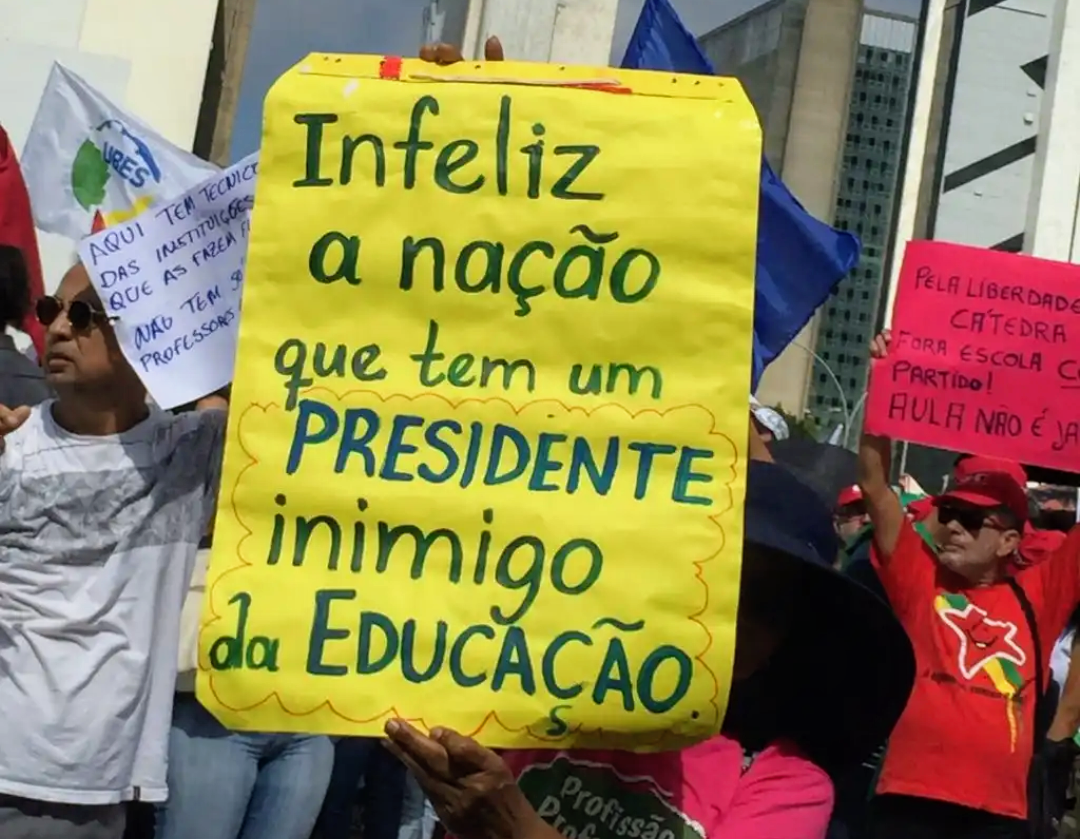 Infeliz
a nação
que tem um
PRESIDENTE
inimigo
da EDUCAÇÃO.
UBES
AQUI TEM
DAS INSTITUIÇÕES
QUE AS FAZEM
NÃO TEM
PROFESSORES
PELA LIBERDADE
CÁTEDRA
FORA ESCOLA
PARTIDO!
AULA NÃO É
Profissão